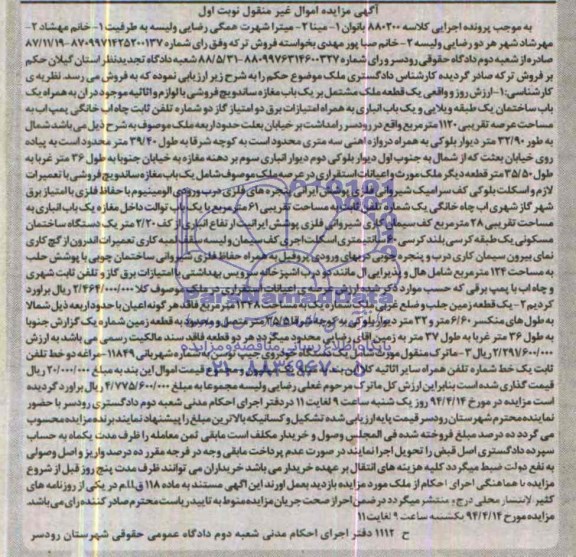 آگهی مزایده اموال غیر منقول نوبت اول
به موجب پرونده اجرایی کلاسه ۸۸۰۲۰۰ بانوان ۱- مینا ۲- میترا شهرت همگی رضایی ولیسه به طرفیت ۱- خانم مهشاد ۲-
مهرشاد شهر هر دو رضایی ولیسه ۲- خانم صبا پور مهدی بخواسته فروش ترکه وفق رای شماره ۸۷۰۹۹۷۱۴۲۵۲۰۰۱۲۷-۸۷/۱۱/۱۹
صادره از شعبه دوم دادگاه حقوقی رودسر و رای شماره ۸۸۰۹۹۷۶۳۱۴۶۰۰۳۲۷-۸۸/۵/۳۱ شعبه دادگاه تجدیدنظر استان گیلان حکم
بر فروش ترکه صادر گردیده کارشناس دادگستری ملک موضوع حکم را به شرح زیر ارزیابی نموده که به فروش می رسد. نظریه ی
کارشناسی: ۱- ارزش روز واقعی یک قطعه ملک مشتمل بر یک باب مغازه ساندویچ فروشی با لوازم و اثاثیه موجود در آن به همراه یک
باب ساختمان یک طبقه ویلایی و یک باب انباری به همراه امتیازات برق دو امتیاز گاز دو شماره تلفن ثابت چاه اب خانگی پمپ اب به
مساحت عرصه تقریبی ۱۱۲۰ متر مربع واقع در رودسر رامداشت بر خیابان بعثت حدود اربعه ملک موصوف به شرح ذیل می باشد شمال
به طور ۳۲/۹۰ متر دیوار بلوکی به همراه دروازه اهنی سه متری محدود است به کوچه شرقا به طول ۳۹/۴۰ متر محدود است به پیاده
روی خیابان بعثت که از شمال به جنوب اول دیوار بلوکی دوم دیوار انباری سوم بر دهنه مغازه به خیابان جنوبا به طول ۳۶ متر غربا به
طول ۳۵/۵۰ متر قطعه دیگر ملک مورث واعیانات استقراری در عرصه ملک موصوف شامل یک باب مغازه ساندویچ فروشی با تعمیرات
لازم و اسکلت بلوکی کف سرامیک شیروانی فلزی پوشش ایرانی پنجره های فلزی درب ورودی الومینیوم با حفاظ فلزی با امتیاز برق
شهر گاز شهری اب چاه خانگی یک شماره تلفن ثابت به مساحت تقریبی ۶۱ متر مربع با یک باب توالت داخل مغازه یک باب انباری به
مساحت تقریبی ۲۸ متر مربع کف سیمان کاری شیروانی فلزی پوشش ایرانیت ارتفاع انباری از کف ۲/۲۰ متر یک دستگاه ساختمان
مسکونی یک طبقه کرسی بلند کرسی ۶۰ سانتیمتری اسکلت اجری کف سیمان ولیسه سقف لمبه کاری تعمیرات اندرون از گچ کاری
نمای بیرون سیمان کاری درب و پنجره چوبی دربهای ورودی پروفیل به همراه حفاظ فلزی شیروانی ساختمان چوبی با پوشش حلب
به مساحت ۱۲۴ متر مربع شامل هال و پذیرایی ال مانند دو درب اشپزخانه سرویس بهداشتی با امتیازات برق گاز و تلفن ثابت شهری
و چاه اب با پمپ برقی که حسب موارد ذکر شده ارزش عرصه ی اعیانات استقراری در ملک موصوف کلا ۲/۴۶۴/۰۰۰/۰۰۰ ریال براورد
گردید ۲- یک قطعه زمین جلب وضلع غربی ملک شماره یک به مساحت ۱۳۶۷ متر مربع فاقد هر گونه اعیان با حدود اربعه ذیل شمالا
به طول های منکسر ۶/۶۰ متر و ۳۲ متر دیوار بلوکی به کوچه شرقا ۳۵/۵ متر متصل و محدود به قطعه زمین شماره یک گزارش جنوبا
به طول ۳۶ متر غربا به طول ۳۷ متر به زمین اقای رضایی محدود میگردد هر دو قطعه فاقد سند مالکیت رسمی می باشد به ارزش
۲/۲۹۱/۶۰۰/۰۰۰ ریال ۳- ماترک منقول مورث شامل یک دستگاه خودروی جیپ توسن به شماره شهربانی ۱۱۸۴۹- مراغه دو خط تلفن
ثابت یک خط شماره تلفن همراه سایر اثاثیه کلا این بند به مبلغ ارزش جمع اموال موضوع قیمت اموال این بند به مبلغ ۲۰/۰۰۰/۰۰۰ ریال
قیمت گذاری شده است بنابراین ارزش کل ماترک مرحوم غعلی رضایی ولیسه مجموعا به مبلغ ۴/۷۷۵/۶۰۰/۰۰۰ ریال براورد گردیده
است مزایده در مورخ ۹۴/۴/۱۴ روز یک شنبه ساعت ۹ لغایت ۱۱ در دفتر اجرای احکام مدنی شعبه دوم دادگستری رودسر با حضور
نماینده محترم شهرستان رودسر قیمت پایه ارزیابی شده تشکیل و کسانیکه بالاترین مبلغ را پیشنهاد نمایند برنده مزایده محسوب
می گردد ده درصد مبلغ فروخته شده فی المجلس وصول و خریدار مکلف است مابقی ثمن معامله را ظرف مدت یکماه به حساب
سپرده دادگستری اصل قبض را تحویل اجرا نمایند در صورت عدم پرداخت مابقی وجه در فرجه مقرر ده درصد واریز و اصل وصولی
به نفع دولت ضبط میگردد کلیه هزینه های انتقال بر عهده خریدار می باشد خریداران می توانند ظرف مدت پنج روز قبل از شروع
مزایده با هماهنگی اجرای احکام از ملک مورد مزایده بازدید بعمل اورند این آگهی مستند به ماده ۱۱۸ ق.ا.م در یکی از روزنامه های
کثیر الانتشار محلی درج و منتشر میگردد در ضمن احراز صحت جریان مزایده منوط به تایید ریاست محترم صادر کننده رای می باشد.
مزایده مورخ ۹۴/۴/۱۴ یکشنبه ساعت ۹ لغایت ۱۱
ح ۱۱۱۲ دفتر اجرای احکام مدنی شعبه دوم دادگاه عمومی حقوقی شهرستان رودسر